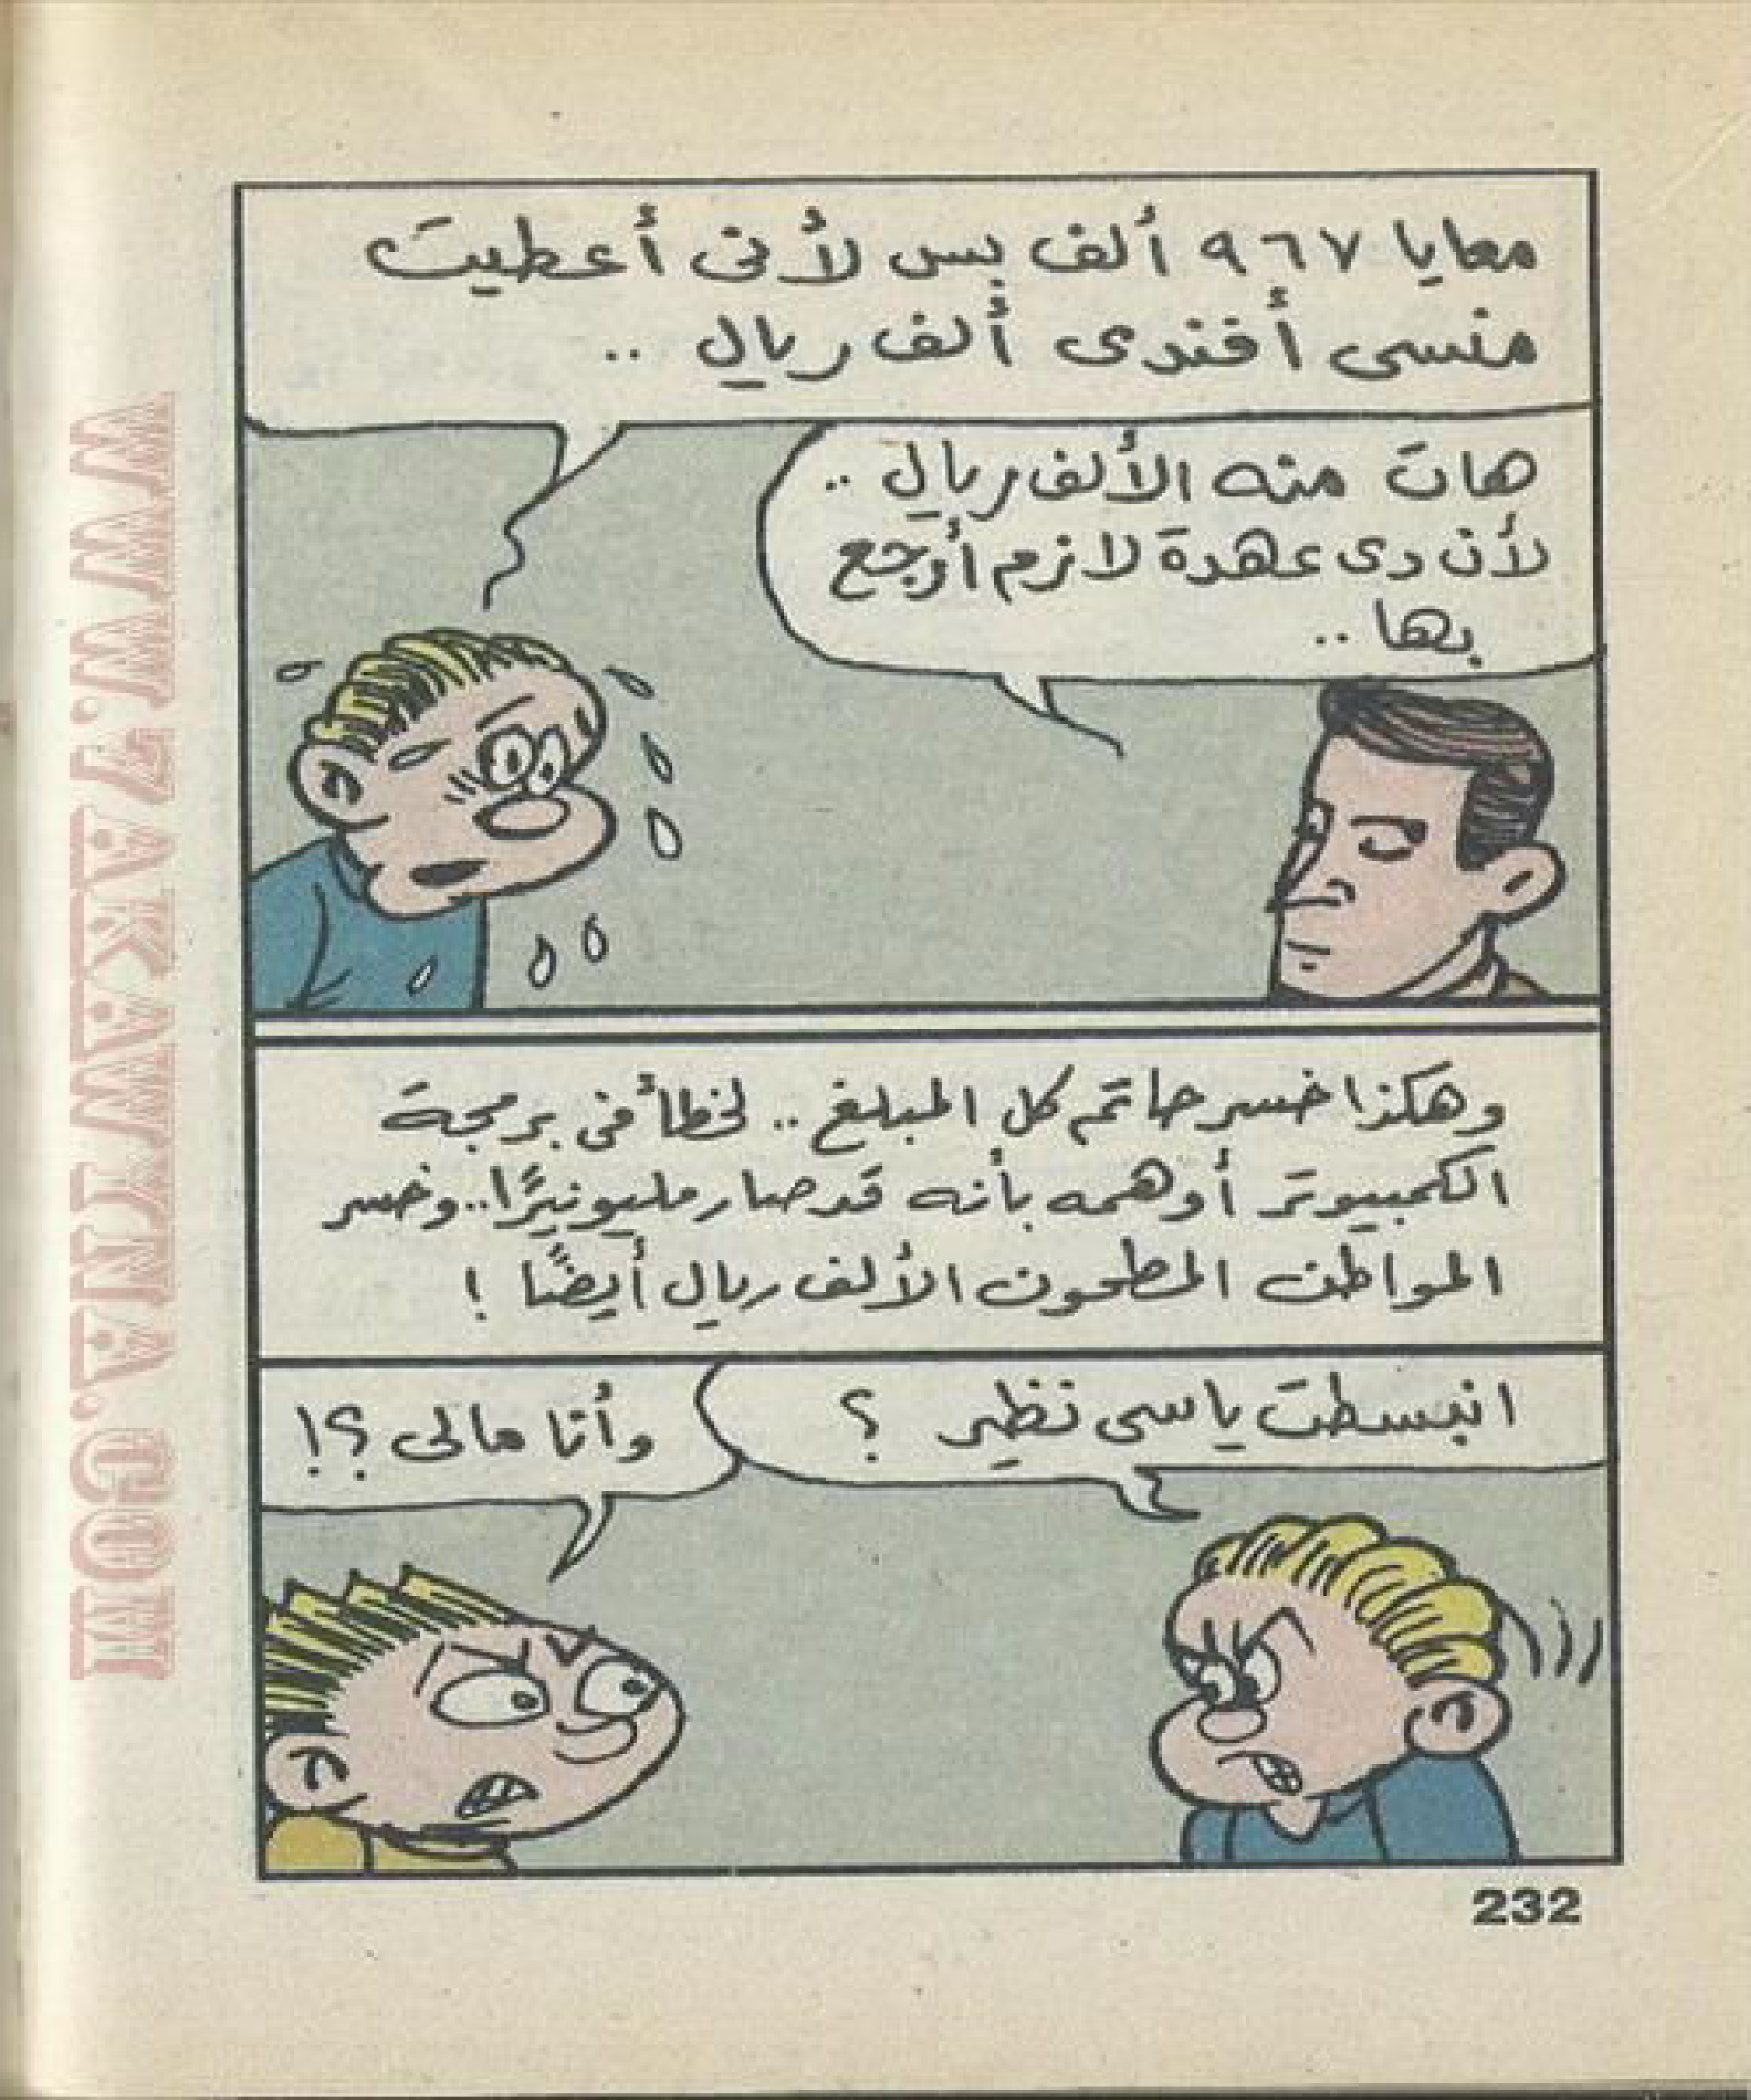 معايا ٩٦٧ ألف بس لأنى أعطيت
منسى أفندى ألف ريال ..
هات منه الألف ريال ..
لأن دى عهدة لازم أرجع
بها ..
وهكذا خسر حاتم كل المبلغ .. لخطأ فى برمجة
الكمبيوتر أوهمه بأنه قد صار مليونيرًا .. وخسر
المواطن المطحون الألف ريال أيضًا !
انبسطت ياسى نظير ؟
وأنا مالى ؟!
232
WWW.7AKAWITNA.COM